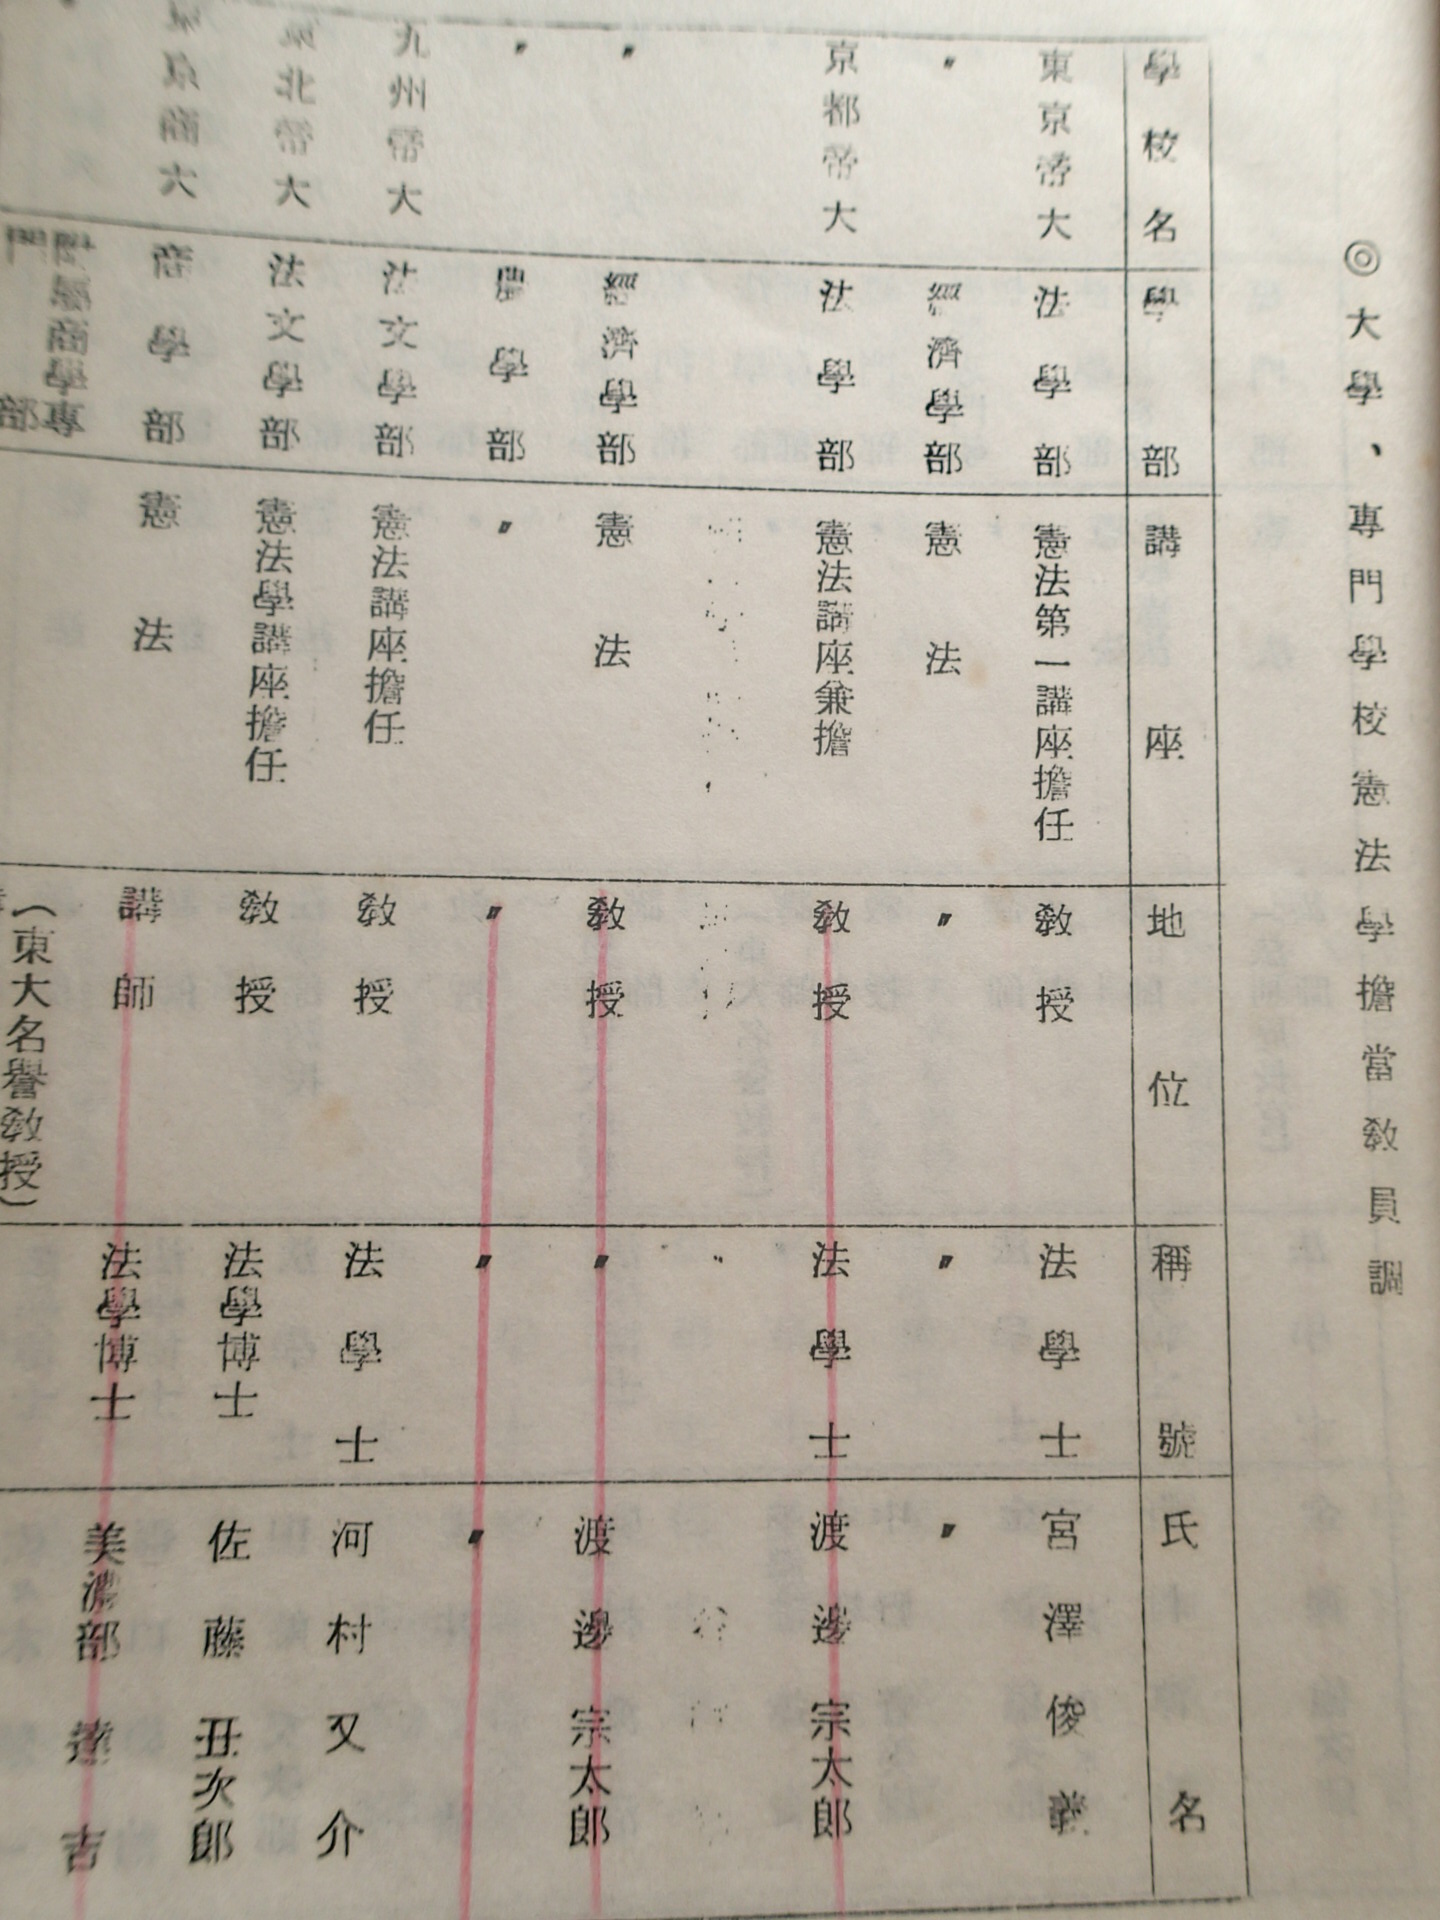 ◎大學、專門學校憲法學擔當教員調
學校名 學部 講座 地位 稱號 氏名
東京帝大 法學部 憲法第一講座擔任 教授 法學士 宮澤俊義
〃 經濟學部 憲法 〃 〃 〃
京都帝大 法學部 憲法講座兼擔 教授 法學士 渡邊宗太郎
〃 經濟學部 憲法 教授 〃 渡邊宗太郎
〃 農學部 〃 〃 〃 〃
九州帝大 法文學部 憲法講座擔任 教授 法學士 河村又介
東北帝大 法文學部 憲法學講座擔任 教授 法學博士 佐藤丑次郎
東京商大 商學部 憲法 講師 法學博士 美濃部達吉
附屬商學專門部 (東大名譽教授)